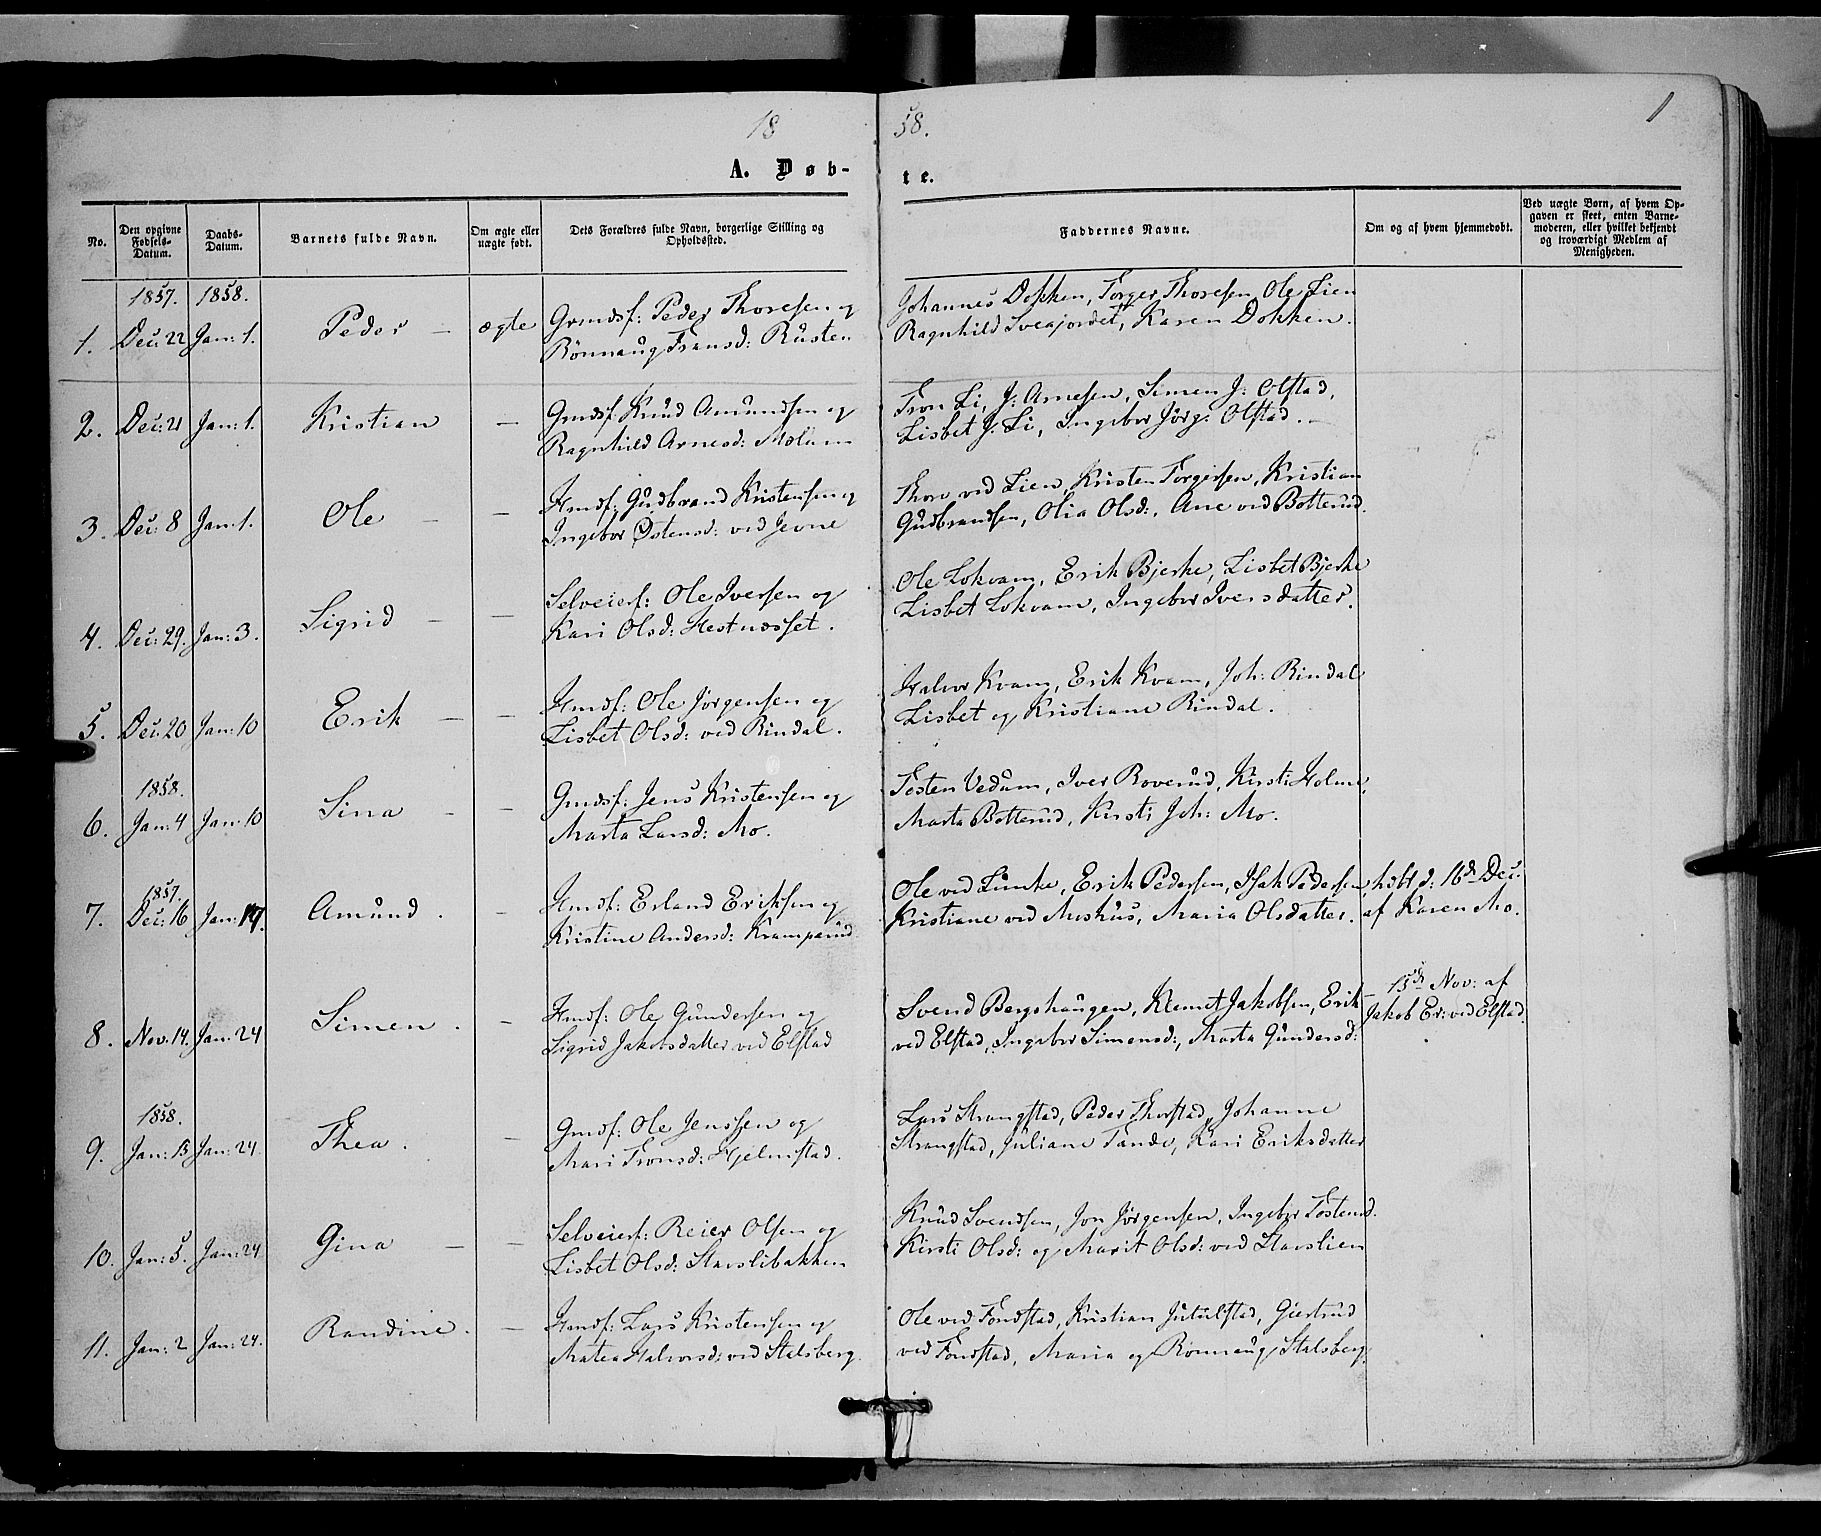 18 58. 1
A. Døb- te.
No.
Den opgivne
Fødsels-
Datum.
Daabs-
Datum.
Barnets fulde Navn.
Om ægte eller
uægte født.
Dets Forældres fulde Navn, borgerlige Stilling og
Opholdssted.
Faddernes Navne.
Om og af hvem hjemmedøbt.
Ved uægte Børn, af hvem Op-
gaven er skeet, enten Barne-
moderen, eller hvilket bekjendt
og troværdigt Medlem af
Menigheden.
1857. 1858.
1. Dec: 22 Jan: 1. Peder — ægte
Grmdsf: Peder Thoresen og
Rönnaug Transd: Rusten
Johannes Dokken, Torger Thoresen, Ole Lien
Ragnhild Sveajordet, Karen Dokken.
2. Dec: 21 Jan: 1. Kristian —
Gmdsf. Knud Amundsen og
Ragnhild Arnesd: Molum
Tron Li, J: Arnesen, Simen J: Olstad,
Lisbet J. Li, Ingebor Jörg: Olstad. —
3. Dec: 8 Jan: 1. Ole — —
Hmdsf: Gudbrand Kristensen og
Ingebor Østensd: ved Jevne
Thore ved Lien, Kristen Torgersen, Kristian
Gudbrandsen, Olia Olsd:, Ane ved Botterud.
4. Dec: 29. Jan: 3. Sigrid — —
Selveierf: Ole Iversen og
Kari Olsd: Hestnæsset.
Ole Lokvam, Erik Bjerke, Lisbet Bjerke
Lisbet Lokvam, Ingebor Iversdatter.
5. Dec: 20 Jan: 10 Erik — —
Hmdsf: Ole Jörgensen og
Lisbet Olsd: ved Rindal.
Halvor Kvam, Erik Kvam, Joh: Rindal
Lisbet og Kristiane Rindal.
1858.
6. Jan: 4 Jan: 10 Sina — —
Gmdsf: Jens Kristensen og
Marta Larsd: Mo.
Tosten Vedum, Iver Roverud, Kirsti Holme,
Marta Botterud, Kirsti Joh: Mo.
1857.
7. Dec: 16 Jan: 17. Amund. —
Hmdsf: Erland Eriksen og
Kristine Andersd: Kramperud
Ole ved Linke, Erik Pedersen, Isak Pedersen,
Kristiane ved Meshus, Maria Olsdatter.
hdbt d: 16d Dec:
af Karen Mo.
8. Nov. 14. Jan: 24 Simen. —
Hmdsf: Ole Gundersen og
Sigrid Jakobsdatter ved Elstad
Svend Bergshaugen, Klemet Jakobsen, Erik
ved Elstad, Ingebor Simensd:, Marta Gundersd:
15d Nov: af
Jakob Er: ved Elstad.
1858.
9. Jan: 13 Jan: 24. Thea. —
Gmdsf: Ole Jenssen og
Mari Tronsd: Hjelmstad.
Lars Strangstad, Peder Thorstad, Johanne
Strangstad, Juliane Tande, Kari Eriksdatter
10. Jan: 5. Jan: 24 Gina — —
Selveierf: Reier Olsen og
Lisbet Olsd: Stavslibakken
Knud Svendsen, Jon Jörgensen, Ingebor Tostensd.
Kirsti Olsd: og Marit Olsd: ved Stavslien
11. Jan: 2 Jan: 24. Randine. —
Hmdsf: Lars Kristensen og
Matea Halvorsd: ved Stalsberg.
Ole ved Fondstad, Kristian Jutulstad, Giertrud
ved Fondstad, Maria og Rönnaug Stalsberg.